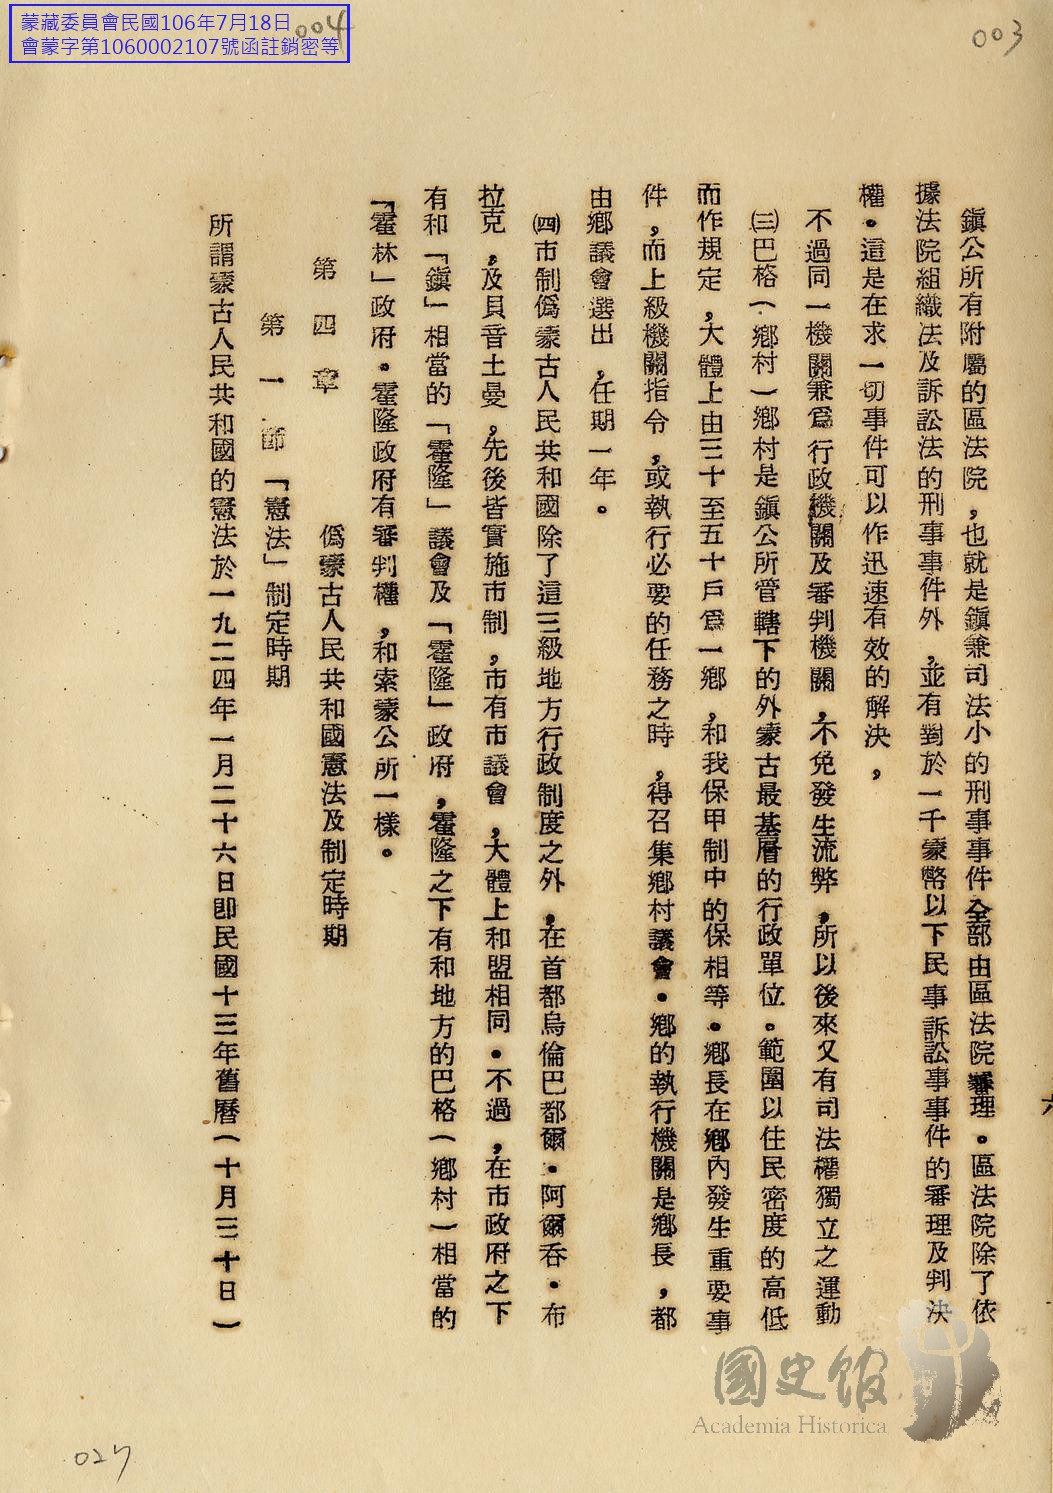 蒙藏委員會民國106年7月18日
會蒙字第1060002107號函註銷密等
004
003
六
鎭公所有附屬的區法院，也就是鎭兼司法小的刑事事件全部由區法院審理。區法院除了依
據法院組織法及訴訟法的刑事事件外，並有對於一千蒙幣以下民事訴訟事事件的審理及判決
權。這是在求一切事件可以作迅速有效的解決，
不過同一機關兼爲行政機關及審判機關，不免發生流弊，所以後來又有司法權獨立之運動
㈢巴格（鄉村）鄉村是鎭公所管轄下的外蒙古最基層的行政單位。範圍以住民密度的高低
而作規定，大體上由三十至五十戶爲一鄉，和我保甲制中的保相等。鄉長在鄉內發生重要事
件，而上級機關指令，或執行必要的任務之時，得召集鄉村議會。鄉的執行機關是鄉長，都
由鄉議會選出，任期一年。
㈣市制僞蒙古人民共和國除了這三級地方行政制度之外，在首都烏倫巴都爾。阿爾呑。布
拉克，及貝音土曼，先後皆實施市制，市有市議會，大體上和盟相同。不過，在市政府之下
有和「鎭」相當的「霍隆」議會及「霍隆」政府，霍隆之下有和地方的巴格（鄉村）相當的
「霍林」政府。霍隆政府有審判權，和索蒙公所一樣。
第四章　僞蒙古人民共和國憲法及制定時期
第一節「憲法」制定時期
所謂蒙古人民共和國的憲法於一九二四年一月二十六日即民國十三年舊曆（十月三十日）
國史館
Academia Historica
027